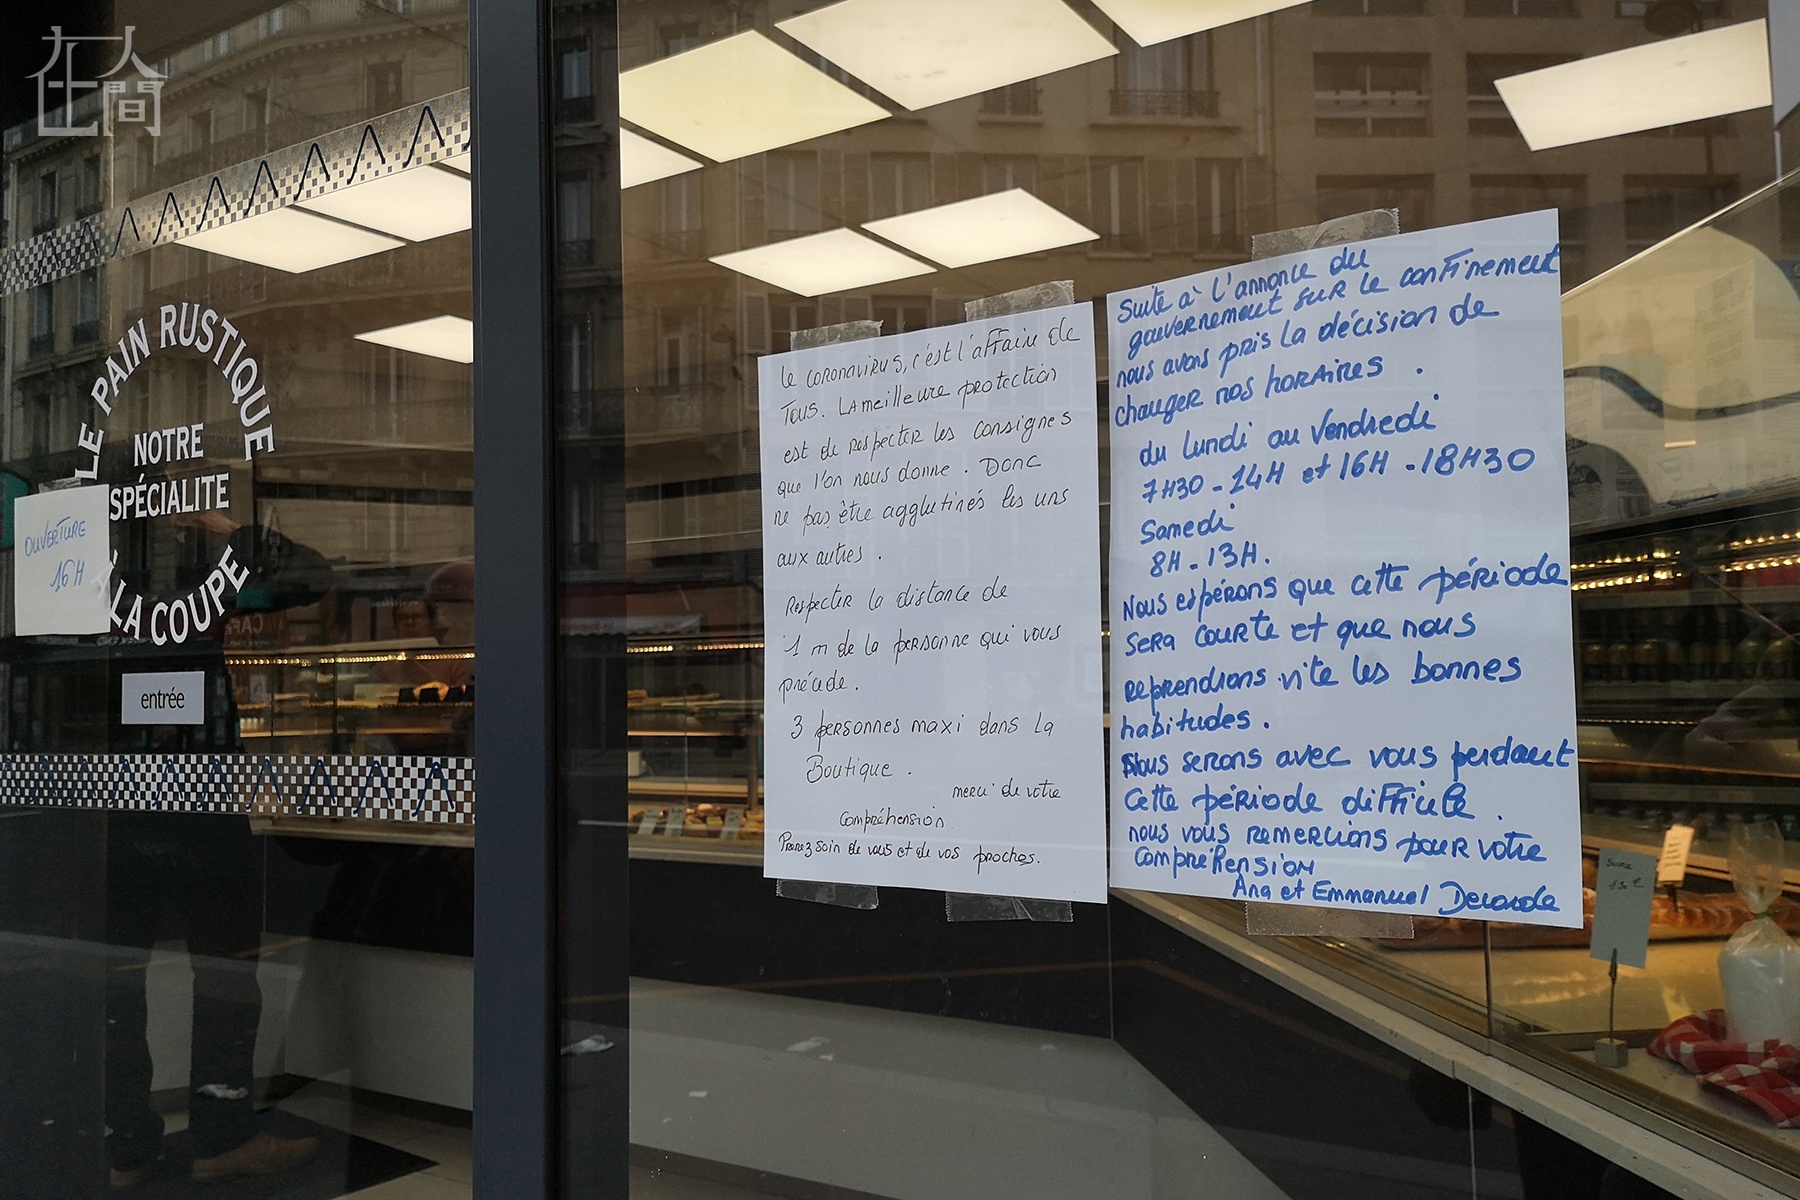 在人間
LE PAIN RUSTIQUE
NOTRE
SPÉCIALITE
À LA COUPE
OUVERTURE
16H
entrée
Le coronavirus, c'est l'affaire de
Tous. La meilleure protection
est de respecter les consignes
que l'on nous donne. Donc
ne pas être agglutinés les uns
aux autres.
Respecter la distance de
1 m de la personne qui vous
précède.
3 personnes maxi dans la
Boutique.
merci de votre
Compréhension
Prenez soin de vous et de vos proches.
Suite à l'annonce du
gouvernement sur le confinement
nous avons pris la décision de
changer nos horaires.
du Lundi au Vendredi
7H30 - 14H et 16H - 18H30
Samedi
8H - 13H.
Nous espérons que cette période
sera courte et que nous
reprendrons vite les bonnes
habitudes.
Nous serons avec vous pendant
Cette période difficile.
nous vous remercions pour votre
Compréhension
Ana et Emmanuel